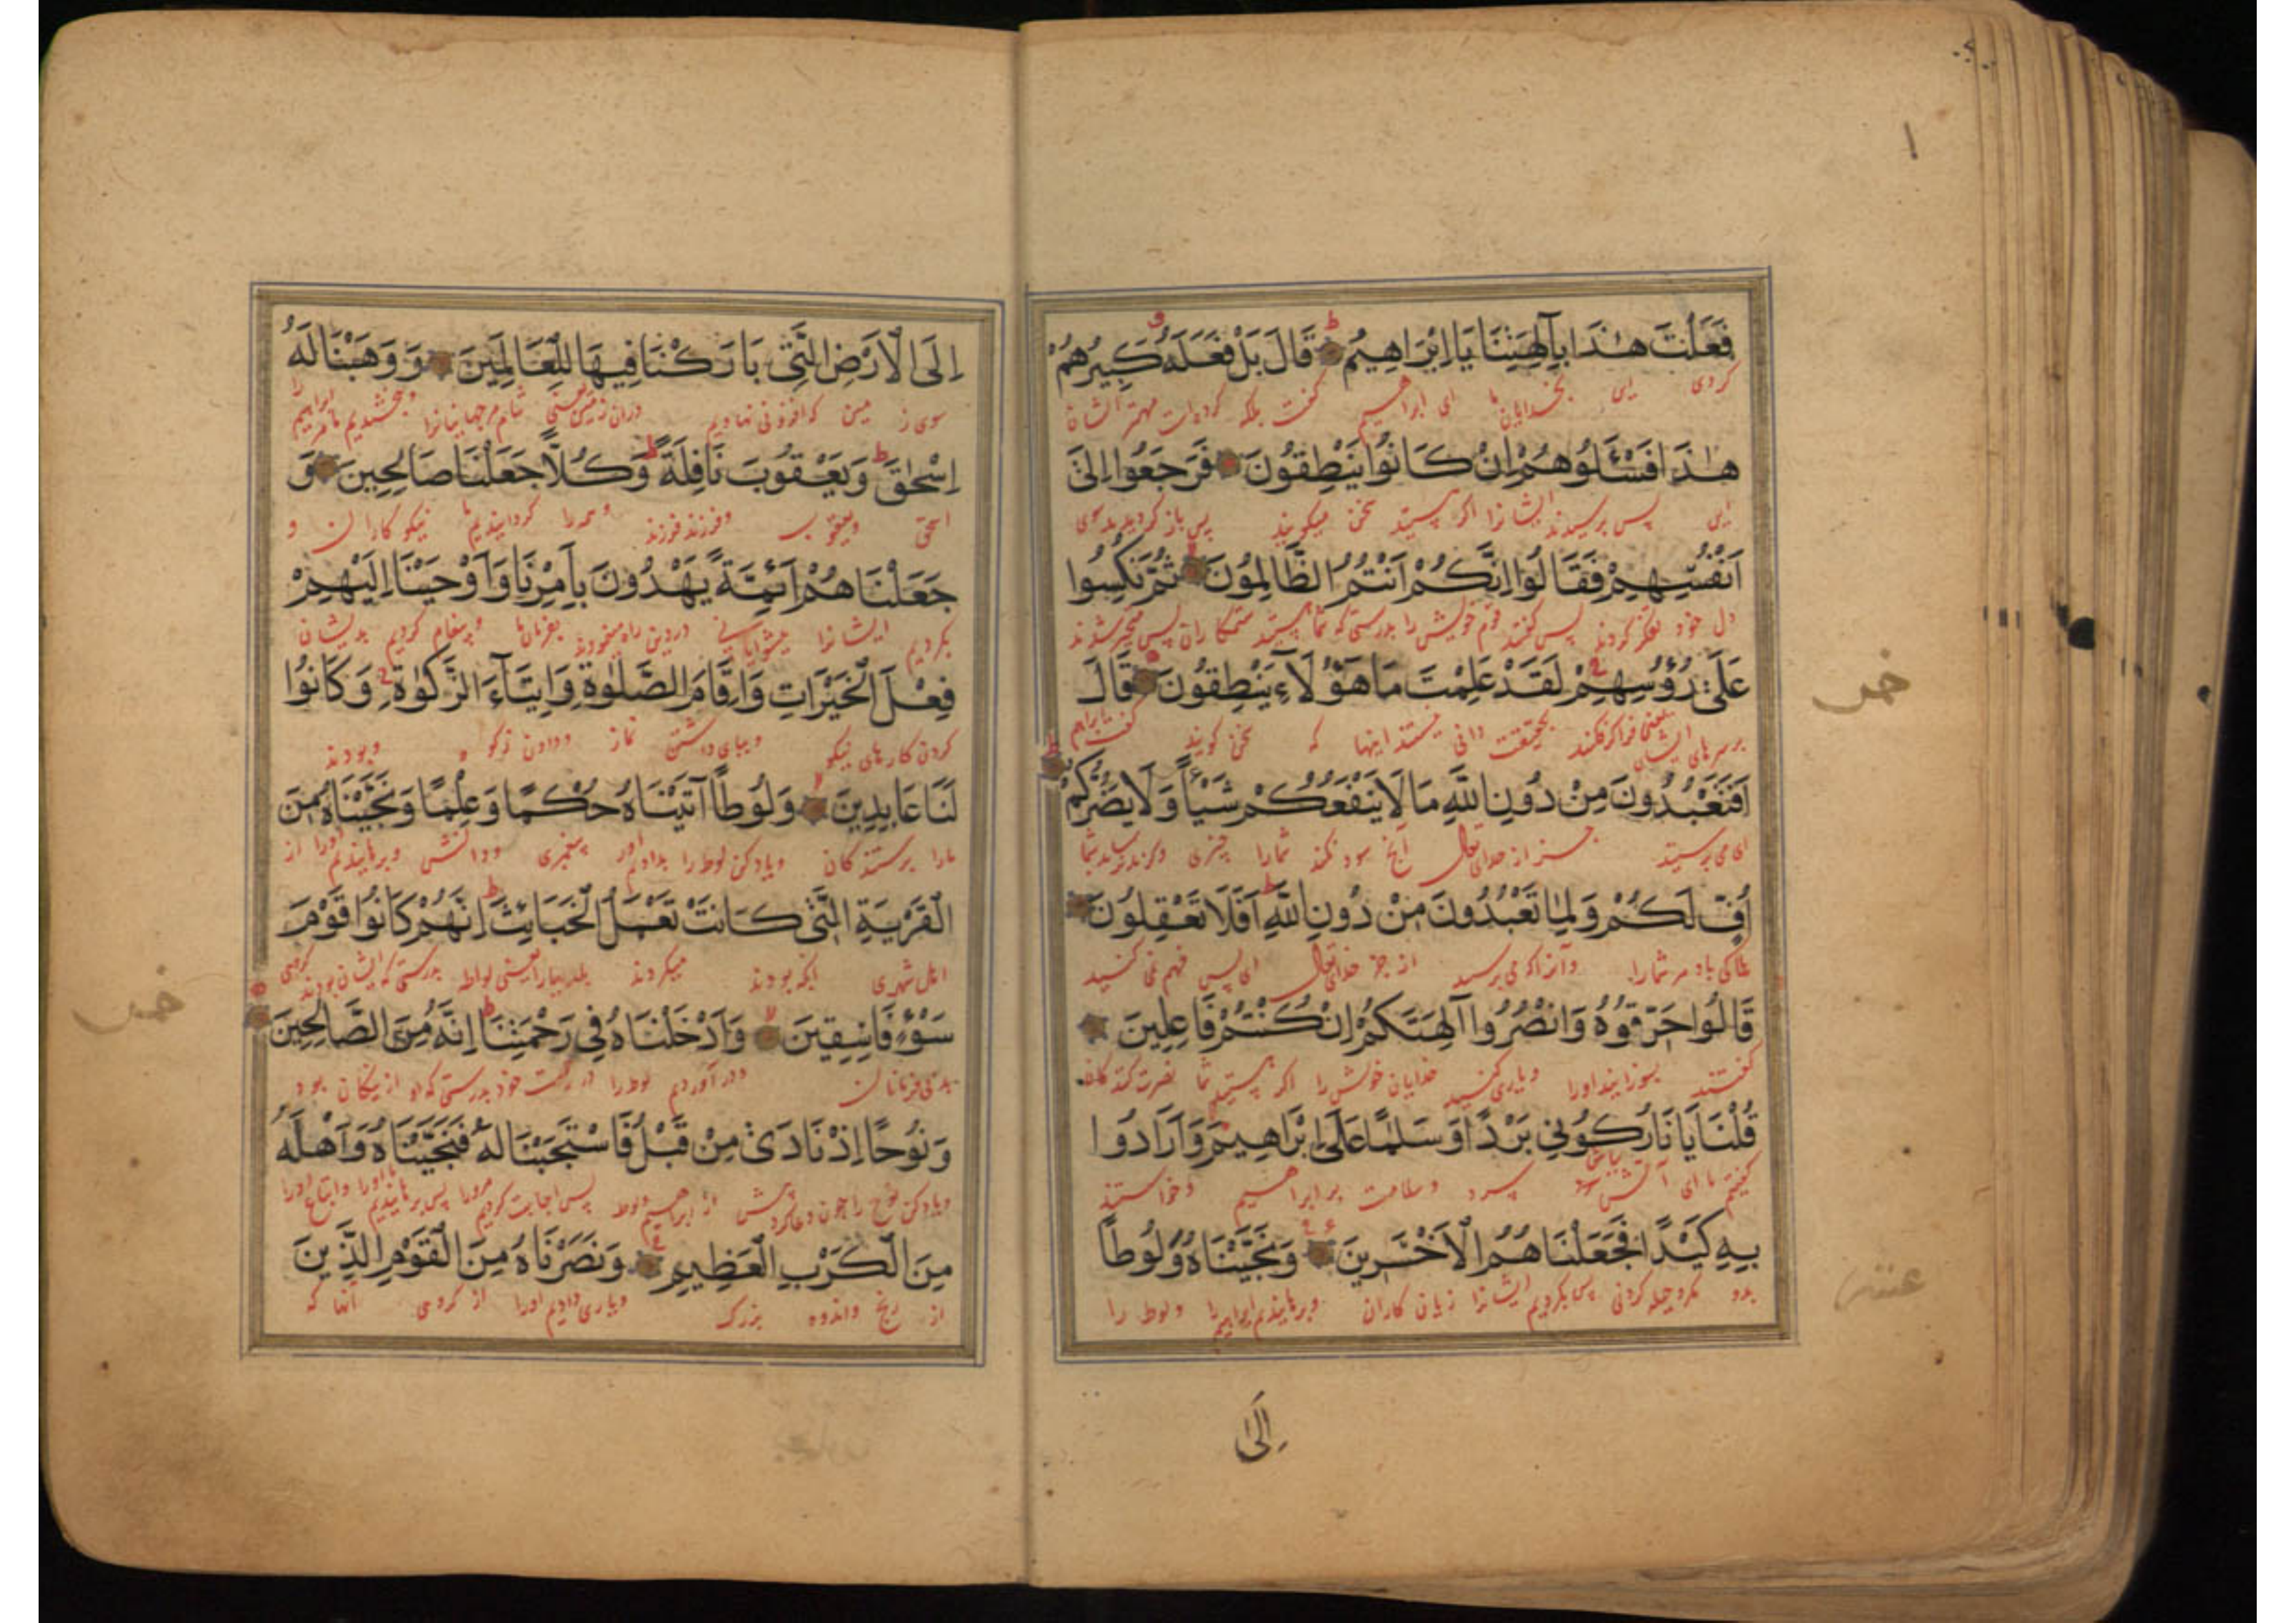 فَعَلْتَ هٰذَا بِآلِهَتِنَا يَا اِبْرَاهِيمُ قَالَ بَلْ فَعَلَهُ كَبِيرُهُمْ
كردى اين بخدايان ما اى ابراهيم كفت بلكه كرده است مهتر ايشان
هٰذَا فَسْـَٔلُوهُمْ اِنْ كَانُوا يَنْطِقُونَ فَرَجَعُوا اِلَىٰ
اين پس پرسيد ايشانرا اكر هستيد سخن ميكويند پس باز كرديدند بسوى
اَنْفُسِهِمْ فَقَالُوا اِنَّكُمْ اَنْتُمُ الظَّالِمُونَ ثُمَّ نُكِسُوا
دل خود تفكر كردند پس كفتند قوم خويش را بدرستى كه شما هستيد ستمكاران پس متحير شدند
عَلَىٰ رُؤُسِهِمْ لَقَدْ عَلِمْتَ مَا هٰؤُلَآءِ يَنْطِقُونَ قَالَ
بر سرهاى ايشان بحقيقت دانى نيستند اينها كه سخن كويند كفت ابراهيم
اَفَتَعْبُدُونَ مِنْ دُونِ اللّٰهِ مَا لَا يَنْفَعُكُمْ شَيْـًٔا وَلَا يَضُرُّكُمْ
اى مى پرستيد جز از خداى تعالى آنچ سود نكند شمارا چيزى وكزند نرساند شما
اُفٍّ لَكُمْ وَلِمَا تَعْبُدُونَ مِنْ دُونِ اللّٰهِ اَفَلَا تَعْقِلُونَ
باد مر شمارا وآنرا كه مى پرستيد از جز خداى تعالى اى پس فهم نمى كنيد
قَالُوا حَرِّقُوهُ وَانْصُرُوا آلِهَتَكُمْ اِنْ كُنْتُمْ فَاعِلِينَ
كفتند بسوزانيد اورا ويارى كنيد خدايان خويش را اكر هستيد شما نصرت كنندكان
قُلْنَا يَا نَارُ كُونِي بَرْدًا وَسَلٰمًا عَلَىٰ اِبْرَاهِيمَ وَاَرَادُوا
كفتيم ما اى آتش سرد وسلامت بر ابراهيم وخواستند
بِهِ كَيْدًا فَجَعَلْنَاهُمُ الْاَخْسَرِينَ وَنَجَّيْنَاهُ وَلُوطًا
بدو مكر وحيله كردنى پس كرديم ايشانرا زيان كاران وبرهانيديم ابراهيم را ولوط را
اِلَى
خمس
عشر
اِلَى الْاَرْضِ الَّتِي بَارَكْنَا فِيهَا لِلْعَالَمِينَ وَوَهَبْنَا لَهُ
سوى زمين كه افزونى نهاديم دران زمين يعنى شام مر جهانيانرا وبخشيديم ما مر ابراهيم را
اِسْحٰقَ وَيَعْقُوبَ نَافِلَةً وَكُلًّا جَعَلْنَا صَالِحِينَ وَ
اسحق ويعقوب وفرزند فرزند وهمه را كردانيديم ما نيكو كاران و
جَعَلْنَاهُمْ اَئِمَّةً يَهْدُونَ بِاَمْرِنَا وَاَوْحَيْنَا اِلَيْهِمْ
بكرديم ايشانرا پيشوايانى در دين راه مينمودند بفرمان ما وپيغام كرديم بديشان
فِعْلَ الْخَيْرَاتِ وَاِقَامَ الصَّلٰوةِ وَاِيتَآءَ الزَّكٰوةِ وَكَانُوا
كردن كارهاى نيكو وبپاى داشتن نماز ودادن زكوه وبودند
لَنَا عَابِدِينَ وَلُوطًا آتَيْنَاهُ حُكْمًا وَعِلْمًا وَنَجَّيْنَاهُ مِنَ
مارا پرستندكان وياد كن لوط را بداديم اورا پيغمبرى ودانش وبرهانيديم اورا از
الْقَرْيَةِ الَّتِي كَانَتْ تَعْمَلُ الْخَبَائِثَ اِنَّهُمْ كَانُوا قَوْمَ
اهل شهرى انكه بودند ميكردند پليديها را يعنى لواطه بدرستى كه ايشان بودند كروهى
سَوْءٍ فَاسِقِينَ وَاَدْخَلْنَاهُ فِي رَحْمَتِنَا اِنَّهُ مِنَ الصَّالِحِينَ
بد بى فرمانان ودر آورديم لوط را در رحمت خود بدرستى كه او از نيكان بود
وَنُوحًا اِذْ نَادَىٰ مِنْ قَبْلُ فَاسْتَجَبْنَا لَهُ فَنَجَّيْنَاهُ وَاَهْلَهُ
وياد كن نوح را چون دعا كرد پيش از ابراهيم ولوط پس اجابت كرديم مرورا پس برهانيديم ما اورا واتباع اورا
مِنَ الْكَرْبِ الْعَظِيمِ وَنَصَرْنَاهُ مِنَ الْقَوْمِ الَّذِينَ
از رنج واندوه بزرك ويارى داديم اورا از كروهى آنها كه
خمس